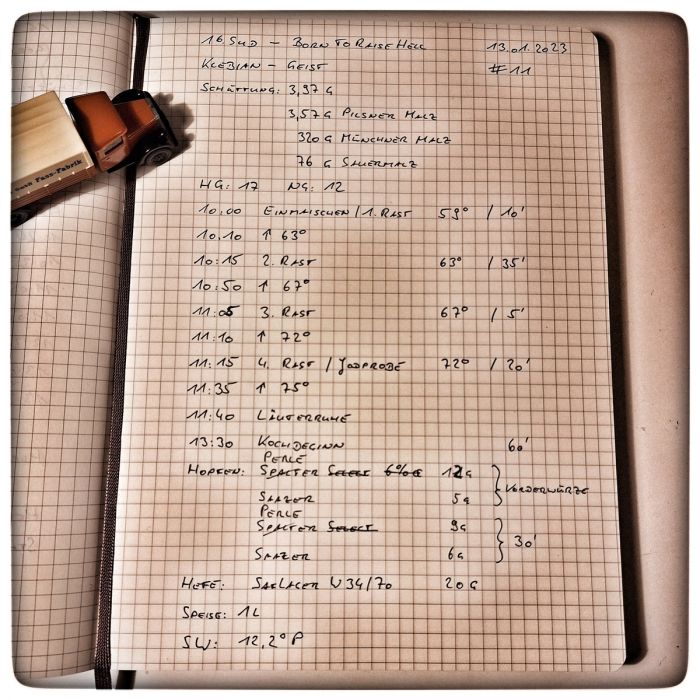 16. SUD – BORN TO RAISE HELL 13.01.2023
KLEBIAN – GEIST #11
SCHÜTTUNG: 3,97 G
3,57 G PILSNER MALZ
320 G MÜNCHNER MALZ
76 G SAUERMALZ
HG: 17 NG: 12
10:00 EINMAISCHEN / 1. RAST 59° / 10'
10.10 ↑ 63°
10:15 2. RAST 63° / 35'
10:50 ↑ 67°
11:05 3. RAST 67° / 5'
11:10 ↑ 72°
11:15 4. RAST / JODPROBE 72° / 20'
11:35 ↑ 75°
11:40 LÄUTERRUHE
13:30 KOCHBEGINN 60'
PERLE
HOPFEN: SPALTER SELECT 6%G 12G
SAAZER 5G } VORDERWÜRZE
PERLE
SPALTER SELECT 9G
SAAZER 6G } 30'
HEFE: SAFLAGER W34/70 20G
SPEISE: 1L
SW: 12,2°P
Fass-Fabrik